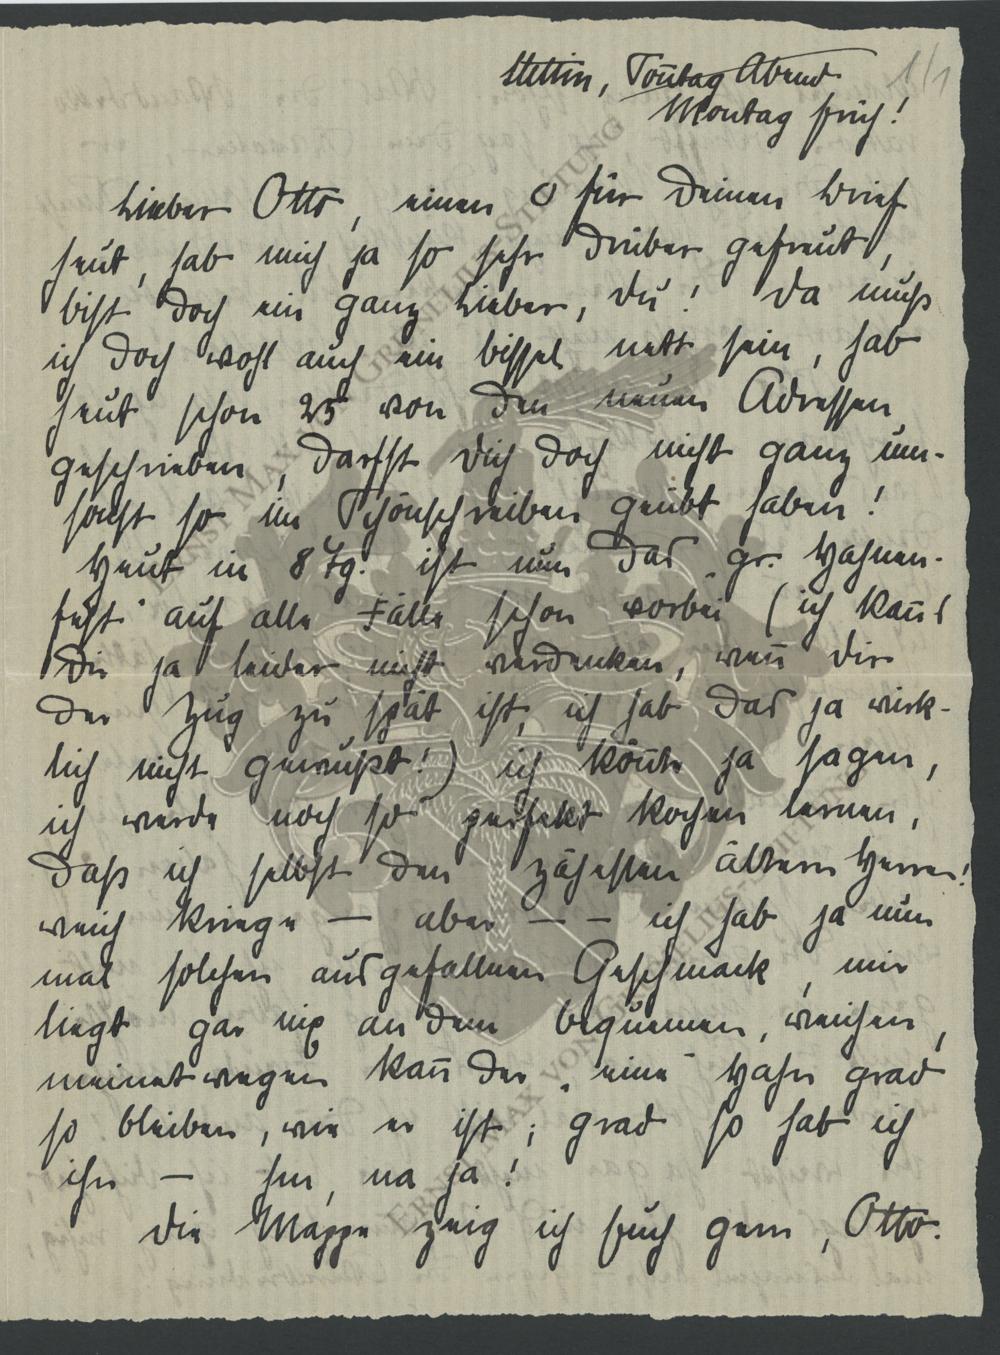 Stettin, Sonntag Abend 1/1
Montag früh!
Lieber Otto, einen o für Deinen Brief
heut, hab mich ja so sehr drüber gefreut,
bist doch ein ganz Lieber, Du! Da muß
ich doch wohl auch ein bissel nett sein, hab
heut schon 25 von den neuen Adressen
geschrieben, darfst Dich doch nicht ganz um-
sonst so im Schönschreiben geübt haben!
Heut in 8 Tg. ist nun das "gr. Hahnen-
fest" auf alle Fälle schon vorbei (ich kanns
Dir ja leider nicht verdenken, wenn Dir
der Zug zu spät ist, ich hab das ja wirk-
lich nicht gewußt!) ich könnte ja sagen,
ich werde noch so perfekt kochen lernen,
daß ich selbst den zähesten älteren Herren!
weich kriege — aber — — ich hab ja nun
mal solchen ausgefallnen Geschmack, mir
liegt gar nix an dem bequemen, weichen,
meinetwegen kann der "eine" Hahn grad
so bleiben, wie er ist; grad so hab ich
ihn — hm, na ja!
Die Mappe zeig ich Euch gern, Otto.
ERNST MAX VON GRUNELIUS-STIFTUNG
ERNST MAX VON GRUNELIUS-STIFTUNG